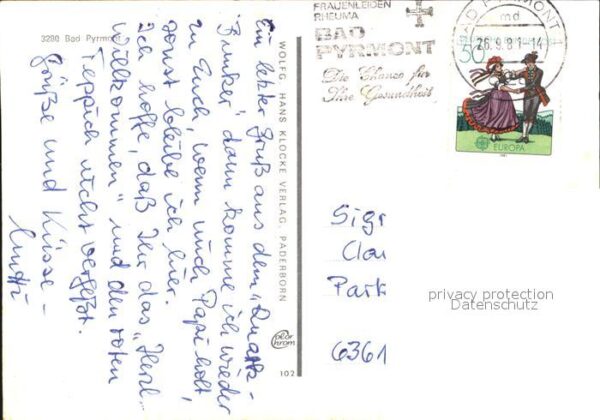 3280 Bad Pyrmont
Ein letzter Gruß aus dem „Quatts-
Bunker", dann komme ich wieder
zu Euch, wenn mich Papi holt,
sonst bleibe ich hier.
Ich hoffe, daß Ihr das „Herzl.
Willkommen" und den roten
Teppich nicht vergeßt.
Grüße und Küsse –
Mutti
WOLFG. HANS KLOCKE VERLAG, PADERBORN
102
FRAUENLEIDEN
RHEUMA
BAD
PYRMONT
Die Chance für
Ihre Gesundheit
BAD PYRMONT
md
26.9.81-14
50
EUROPA
Sigr
Clau
Park
6361
privacy protection
Datenschutz